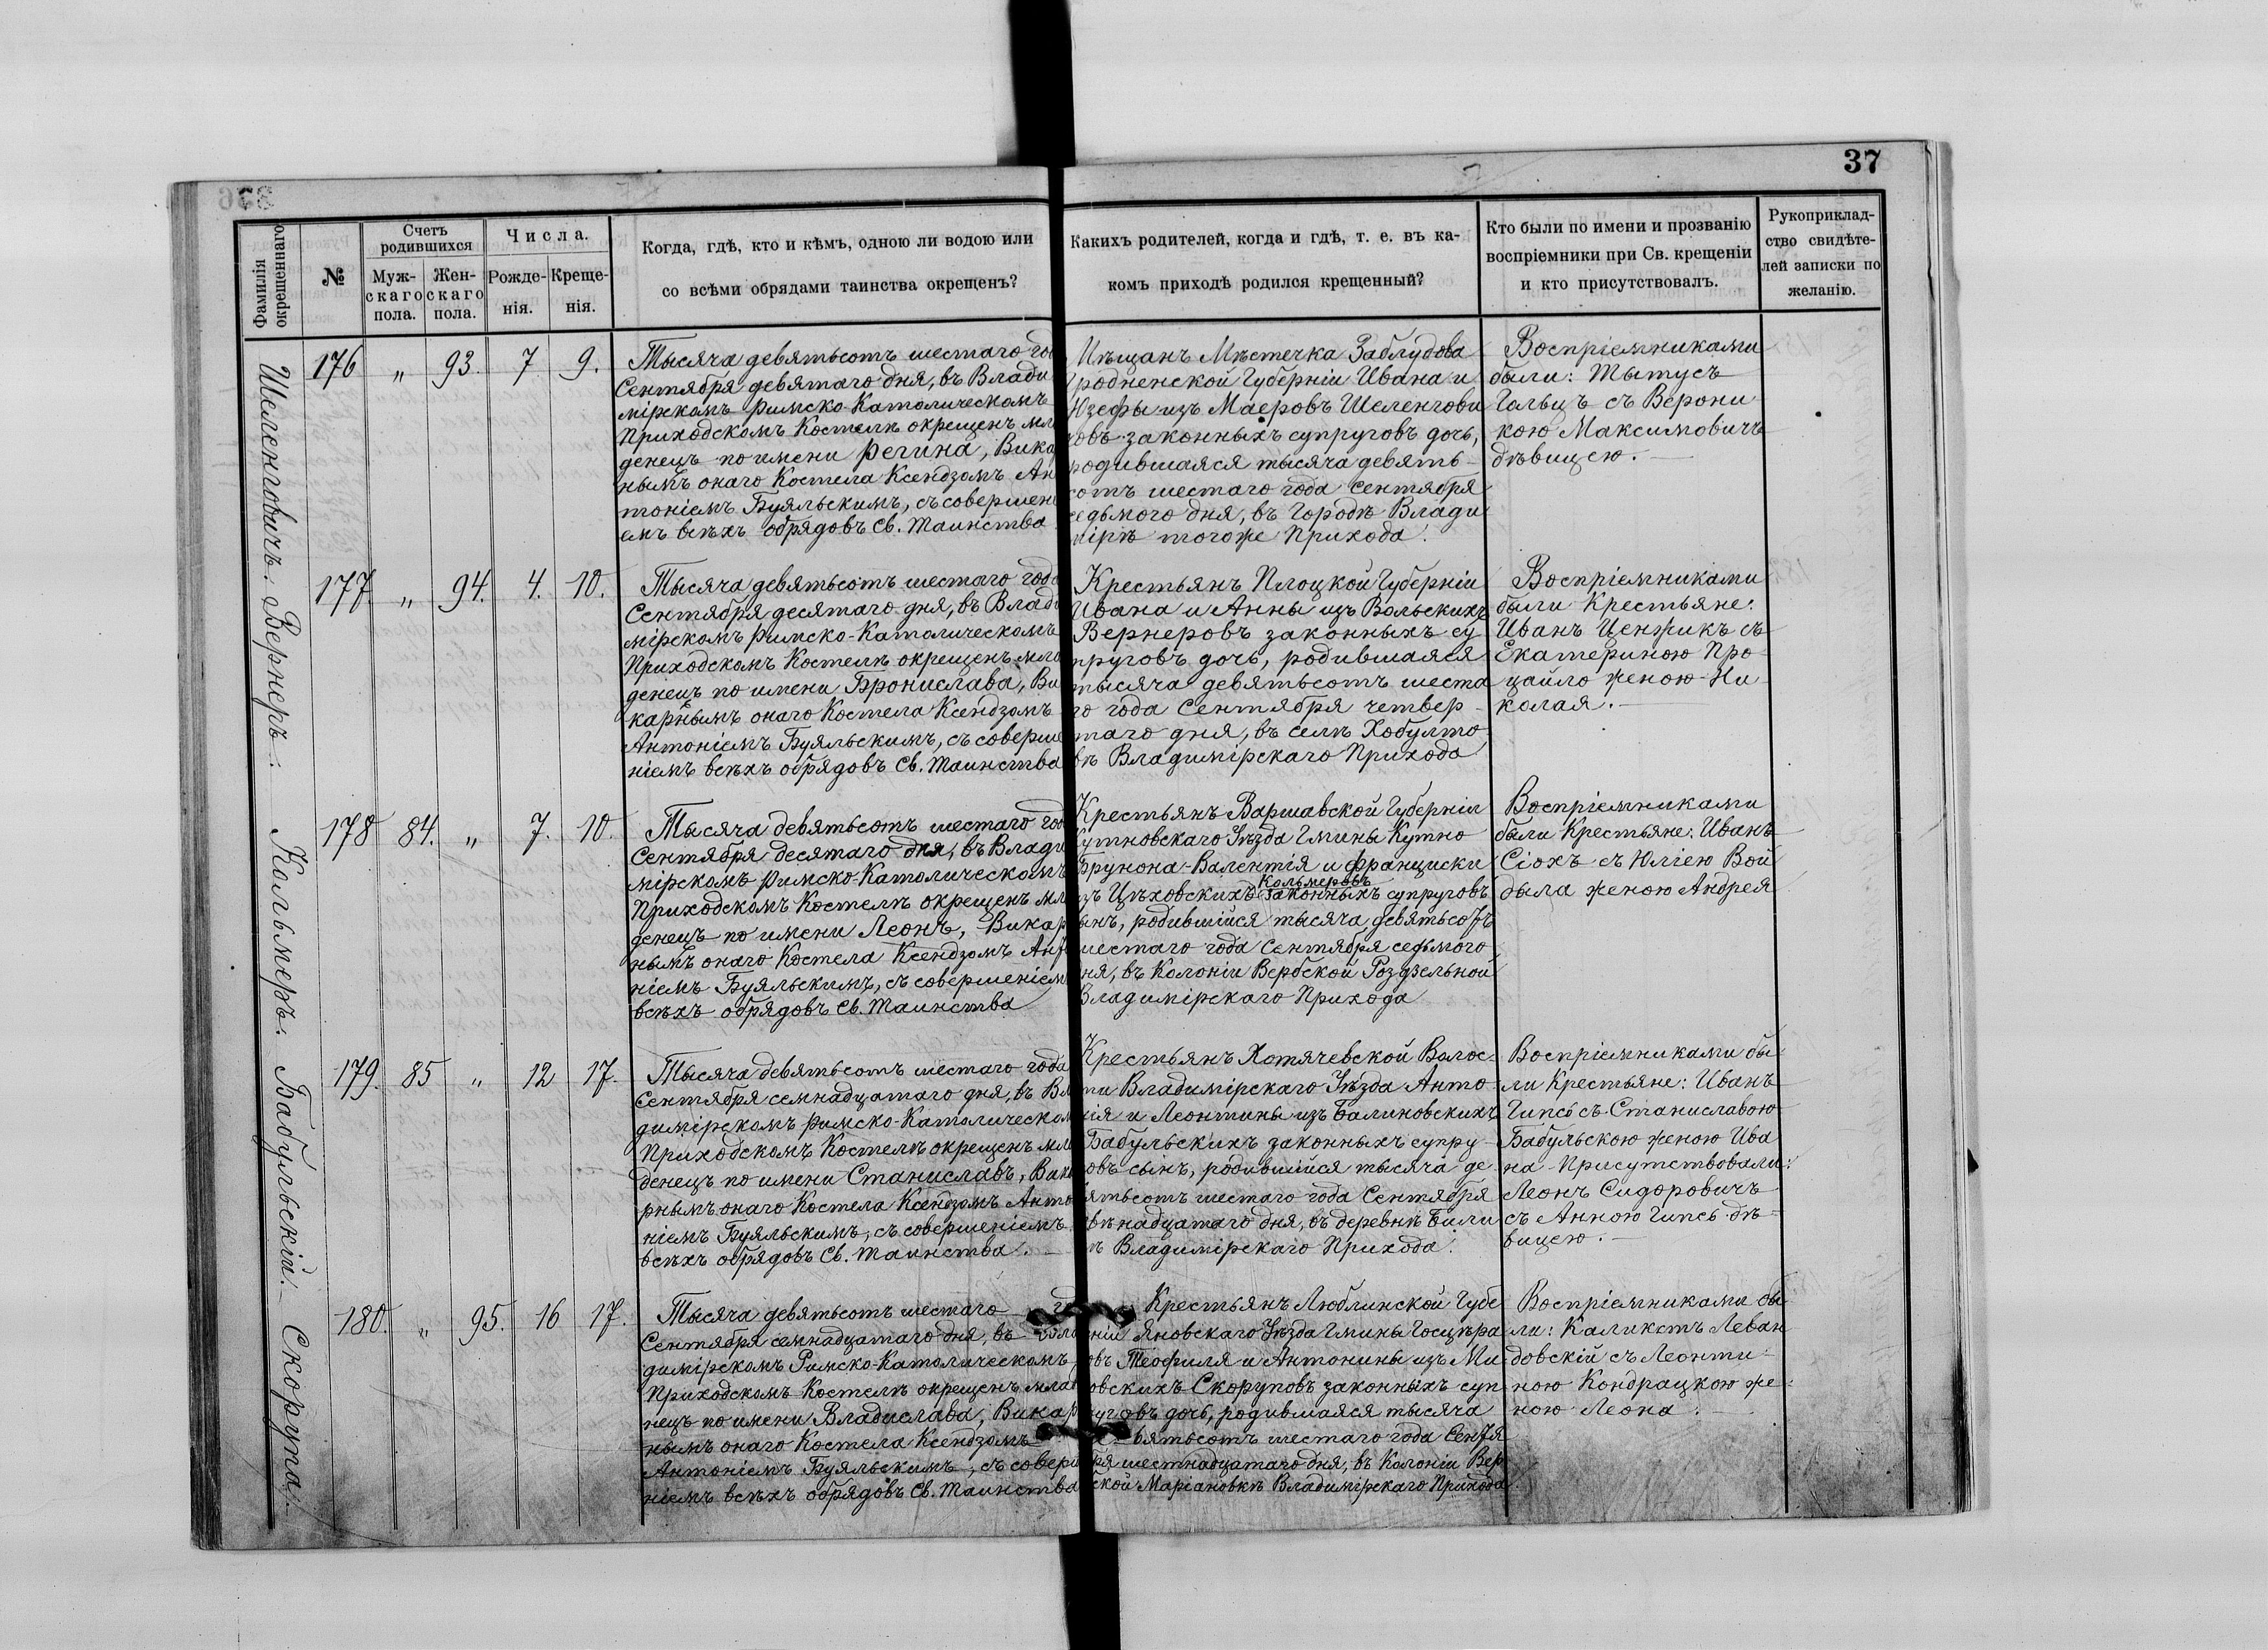 37
Фамилія окрещеннаго
№
Счетъ родившихся
Муж-
скаго
пола.
Жен-
скаго
пола.
Числа.
Рожде-
нія.
Креще-
нія.
Когда, гдѣ, кто и кѣмъ, одною ли водою или
со всѣми обрядами таинства окрещенъ?
Какихъ родителей, когда и гдѣ, т. е. въ ка-
комъ приходѣ родился крещенный?
Кто были по имени и прозванію
воспріемники при Св. крещеніи
и кто присутствовалъ.
Рукоприклад-
ство свидѣте-
лей записки по
желанію.
Шеленговичъ.
176 „ 93. 7 9.
Тысяча девятьсотъ шестаго год
Сентября девятаго дня, въ Влади
мірскомъ Римско-Католическомъ
Приходскомъ Костелѣ окрещенъ мла
денецъ по имени Регина, Вика
нымъ онаго Костела Ксендзомъ Ан
тоніемъ Буяльскимъ, съ совершені
емъ всѣхъ обрядовъ Св. Таинства.
Мѣщанъ Мѣстечка Заблудова
Гродненской Губерніи Ивана и
Юзефы изъ Маеровъ Шеленгови
ковъ законныхъ супруговъ дочь,
родившаяся тысяча девять-
сотъ шестаго года Сентября
седьмого дня, въ Городѣ Влади
мірѣ тогоже Прихода.
Воспріемниками
были: Тытусъ
Гольцъ съ Верони
кою Максимовичъ
дѣвицею.
Вернеръ.
177. „ 94. 4. 10.
Тысяча девятьсотъ шестаго года
Сентября десятаго дня, въ Влади
мірскомъ Римско-Католическомъ
Приходскомъ Костелѣ окрещенъ мла
денецъ по имени Бронислава, Ви
карнымъ онаго Костела Ксендзомъ
Антоніемъ Буяльскимъ, съ соверше
ніемъ всѣхъ обрядовъ Св. Таинства
Крестьянъ Плоцкой Губерніи
Ивана и Анны изъ Вольскихъ
Вернеровъ законныхъ су
пруговъ дочь, родившаяся
тысяча девятьсотъ шеста
го года Сентября четвер-
таго дня, въ селѣ Хобулто
вѣ Владимірскаго Прихода
Воспріемниками
были Крестьяне:
Иванъ Ценжикъ съ
Екатериною Про
цайло женою Ни
колая.
Кольмеръ.
178 84. „ 7. 10.
Тысяча девятьсотъ шестаго год
Сентября десятаго дня, въ Влади
мірскомъ Римско-Католическомъ
Приходскомъ Костелѣ окрещенъ мл
денецъ по имени Леонъ, Викар
нымъ онаго Костела Ксендзомъ Анто
ніемъ Буяльскимъ, съ совершеніем
всѣхъ обрядовъ Св. Таинства
Крестьянъ Варшавской Губерніи
Кутновскаго Уѣзда Гмины Кутно
Брунона-Валентія и Франциски
изъ Цѣховскихъ Кольмеровъ законныхъ супруговъ
сынъ, родившійся тысяча девятьсотъ
шестаго года Сентября седьмого
дня, въ Колоніи Вербской Роздзельной
Владимірскаго Прихода
Воспріемниками
были Крестьяне: Иванъ
Сіохъ съ Юліею Вой
дыла женою Андрея
Бабульскій.
179. 85 „ 12 17.
Тысяча девятьсотъ шестаго года
Сентября семнадцатаго дня, въ Вла
димірскомъ Римско-Католическом
Приходскомъ Костелѣ окрещенъ мла
денецъ по имени Станиславъ, Вика
рнымъ онаго Костела Ксендзомъ Анто
ніемъ Буяльскимъ, съ совершеніемъ
всѣхъ обрядовъ Св. Таинства.
Крестьянъ Хотячевской Волос-
ти Владимірскаго Уѣзда Анто-
нія и Леонтины изъ Балиновскихъ
Бабульскихъ законныхъ супру-
говъ сынъ, родившійся тысяча де-
вятьсотъ шестаго года Сентября
двѣнадцатаго дня, въ деревнѣ Били
чѣ Владимірскаго Прихода.
Воспріемниками бы-
ли Крестьяне: Иванъ
Гипсъ съ Станиславою
Бабульскою женою Ива
на Присутствовали:
Леонъ Сидоровичъ
съ Анною Гипсъ дѣ-
вицею.
Скорупа.
180. „ 95. 16 17.
Тысяча девятьсотъ шестаго го
Сентября семнадцатаго дня, въ Вла
димірскомъ Римско-Католическомъ
Приходскомъ Костелѣ окрещенъ млад
нецъ по имени Владислава, Викар
нымъ онаго Костела Ксендзомъ
Антоніемъ Буяльскимъ, съ соверш
ніемъ всѣхъ обрядовъ Св. Таинства
Крестьянъ Люблинской Губе
рніи Яновскаго Уѣзда Гмины Госцѣра
довъ Теофиля и Антонины изъ Ми-
овскихъ Скоруповъ законныхъ суп
руговъ дочь, родившаяся тысяча
девятьсотъ шестаго года Сентя
бря шестнадцатаго дня, въ Колоніи Вер
бской Маріановкѣ Владимірскаго Прихода.
Воспріемниками бы
ли: Каликстъ Леван
довскій съ Леонти
ною Кондрацкою же-
ною Леона.